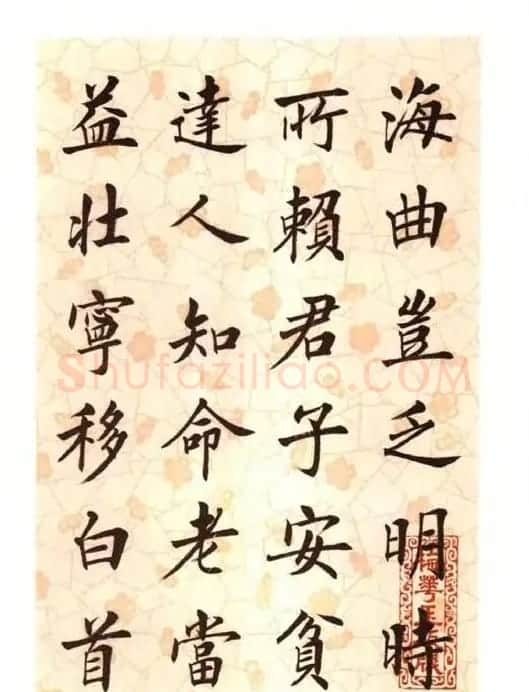 海曲豈乏明時
所賴君子安貧
達人知命老當
益壯寧移白首
Shufaziliao.COM